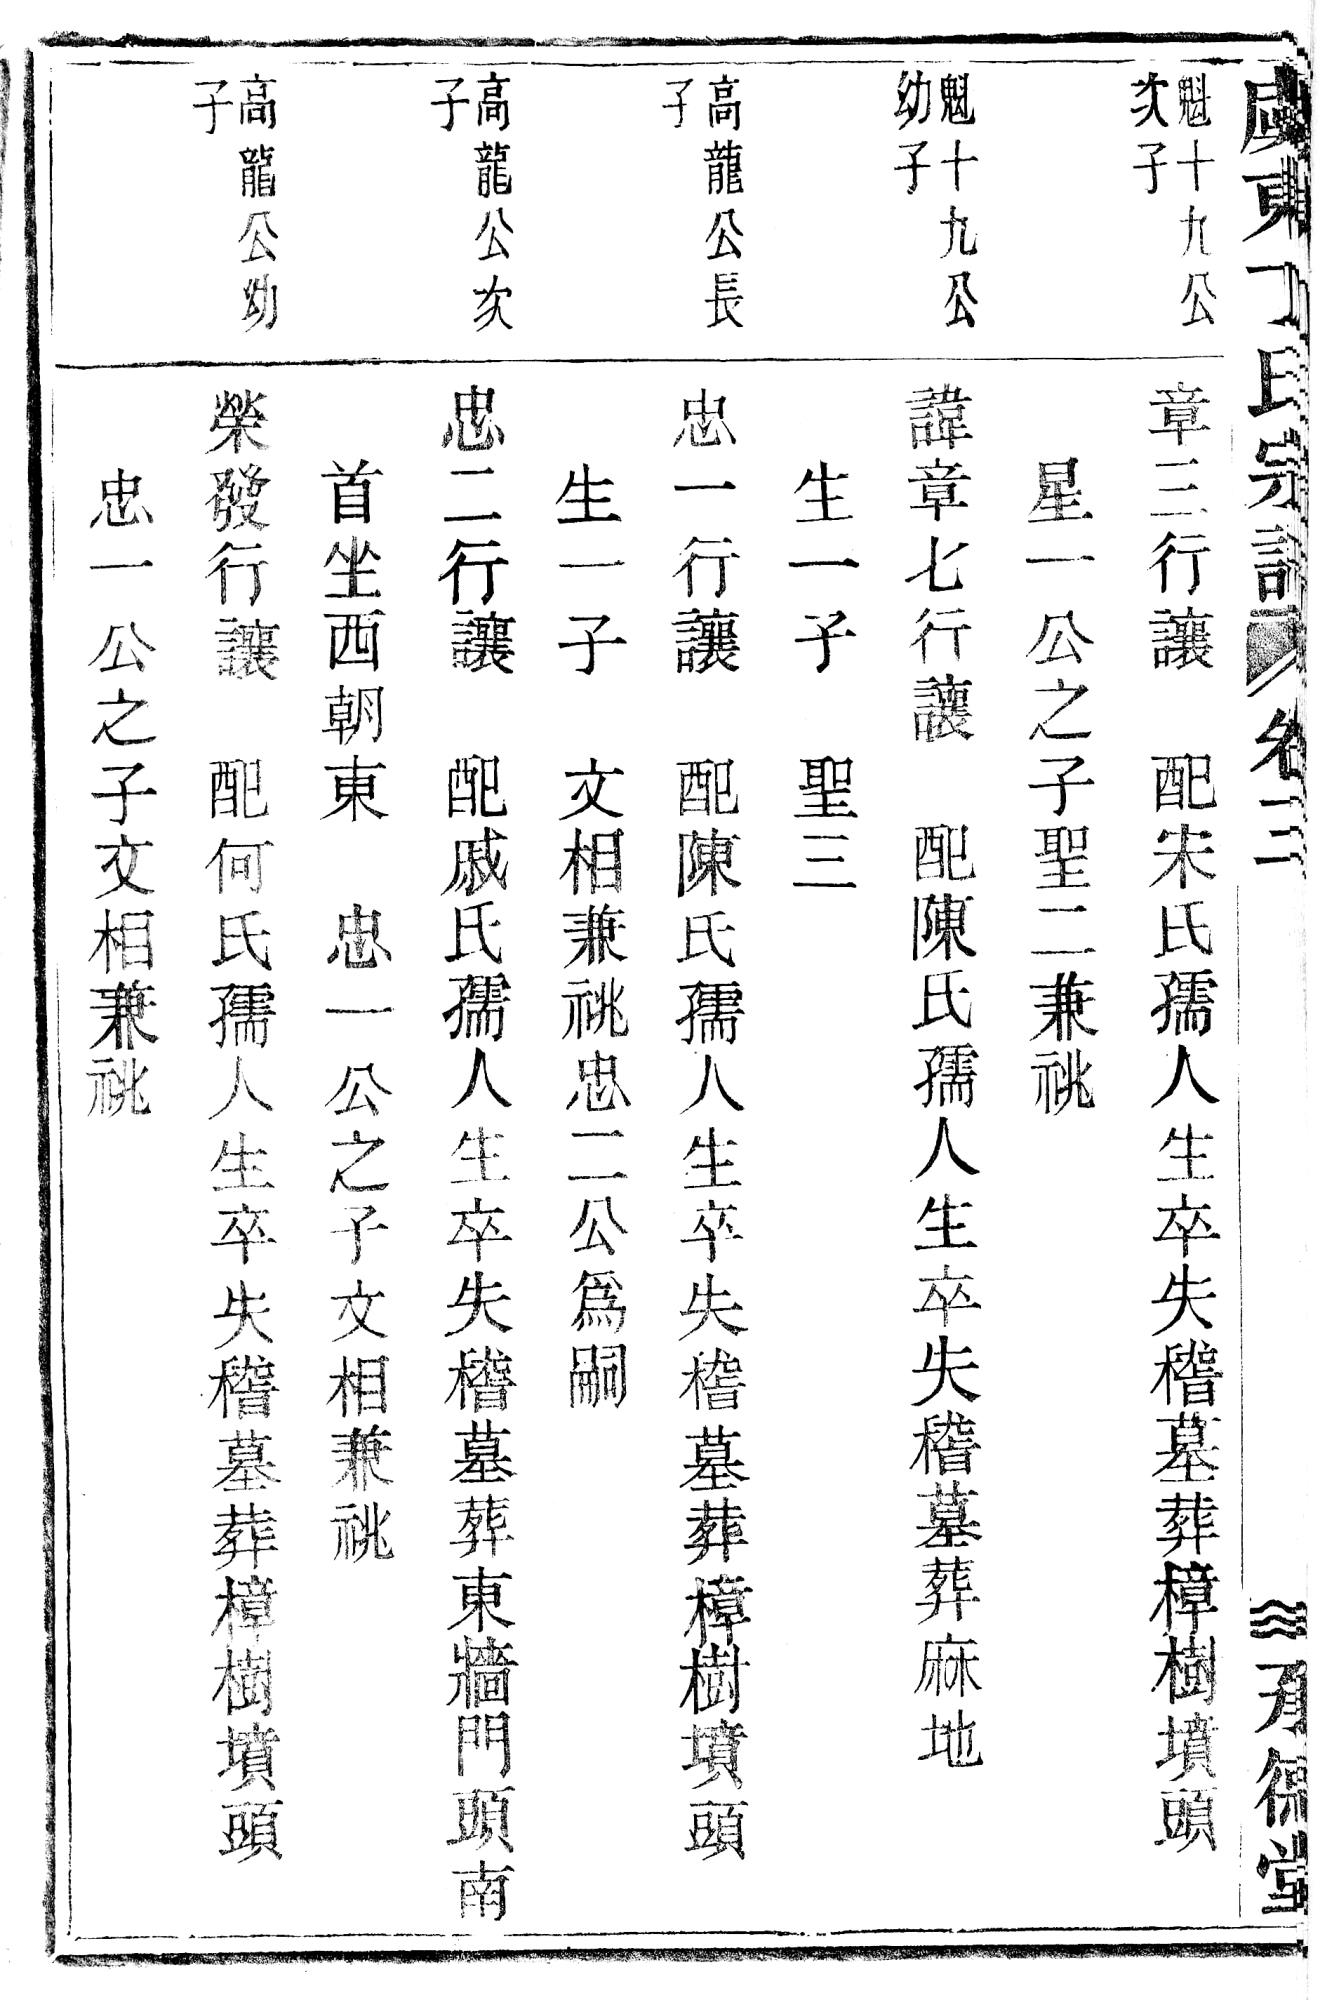 虞東丁氏宗譜 卷二 承德堂
魁十九公
次子
章三行讓 配宋氏孺人生卒失稽墓葬樟樹墳頭
星一公之子聖二兼祧
魁十九公
幼子
諱章七行讓 配陳氏孺人生卒失稽墓葬麻地
生一子 聖三
高龍公長
子
忠一行讓 配陳氏孺人生卒失稽墓葬樟樹墳頭
生一子 文相兼祧忠二公爲嗣
高龍公次
子
忠二行讓 配戚氏孺人生卒失稽墓葬東牆門頭南
首坐西朝東 忠一公之子文相兼祧
高龍公幼
子
榮發行讓 配何氏孺人生卒失稽墓葬樟樹墳頭
忠一公之子文相兼祧